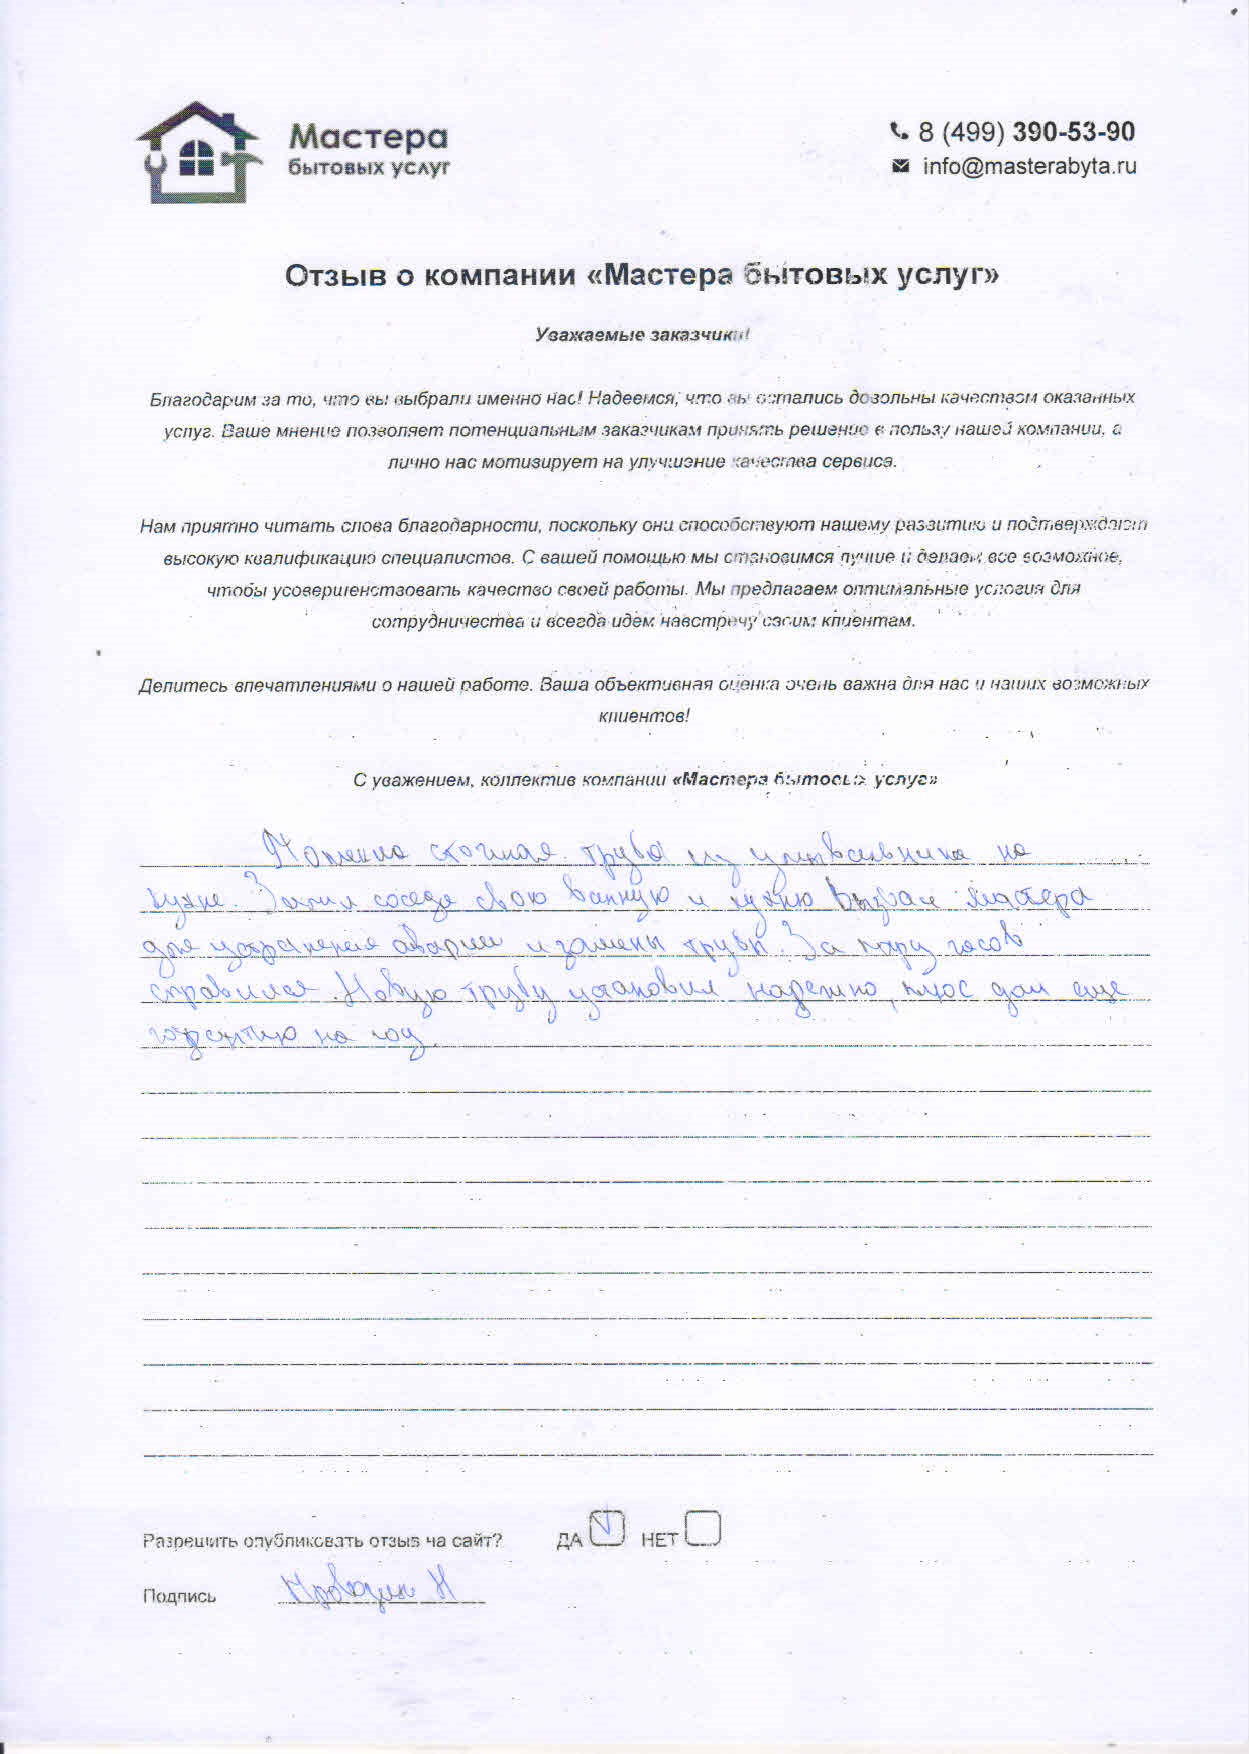 Мастера
бытовых услуг
8 (499) 390-53-90
info@masterabyta.ru
Отзыв о компании «Мастера бытовых услуг»
Уважаемые заказчики!
Благодарим за то, что вы выбрали именно нас! Надеемся, что вы остались довольны качеством оказанных
услуг. Ваше мнение позволяет потенциальным заказчикам принять решение в пользу нашей компании, а
лично нас мотивирует на улучшение качества сервиса.
Нам приятно читать слова благодарности, поскольку они способствуют нашему развитию и подтверждают
высокую квалификацию специалистов. С вашей помощью мы становимся лучше и делаем все возможное,
чтобы усовершенствовать качество своей работы. Мы предлагаем оптимальные условия для
сотрудничества и всегда идем навстречу своим клиентам.
Делитесь впечатлениями о нашей работе. Ваша объективная оценка очень важна для нас и наших возможных
клиентов!
С уважением, коллектив компании «Мастера бытовых услуг»
Потекла сточная труба из умывальника на
кухне. Залил соседа свою ванную и кухню Вызвал мастера
для устранения аварии и замены трубы. За пару часов
справился. Новую трубу установил надежно, плюс дал еще
гарантию на год.
Разрешить опубликовать отзыв на сайт? ДА НЕТ
Подпись